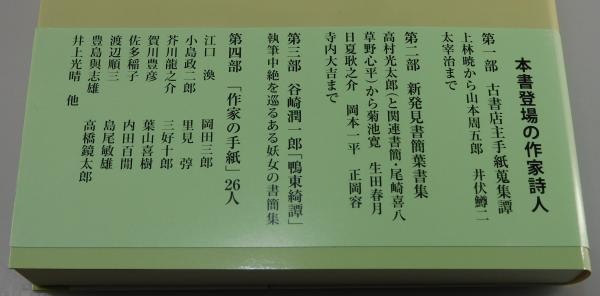 本書登場の作家詩人
第一部 古書店主手紙蒐集譚
上林暁から山本周五郎 井伏鱒二
太宰治まで
第二部 新発見書簡葉書集
高村光太郎(と関連書簡・尾崎喜八
草野心平)から菊池寛 生田春月
日夏耿之介 岡本一平 正岡容
寺内大吉まで
第三部 谷崎潤一郎「鴨東綺譚」
執筆中絶を巡るある妖女の書簡集
第四部 「作家の手紙」26人
江口渙 岡田三郎
小島政二郎 里見弴
芥川龍之介 三好十郎
賀川豊彦 葉山嘉樹
佐多稲子 内田百閒
渡辺順三 島尾敏雄
豊島與志雄 高橋鏡太郎
井上光晴 他